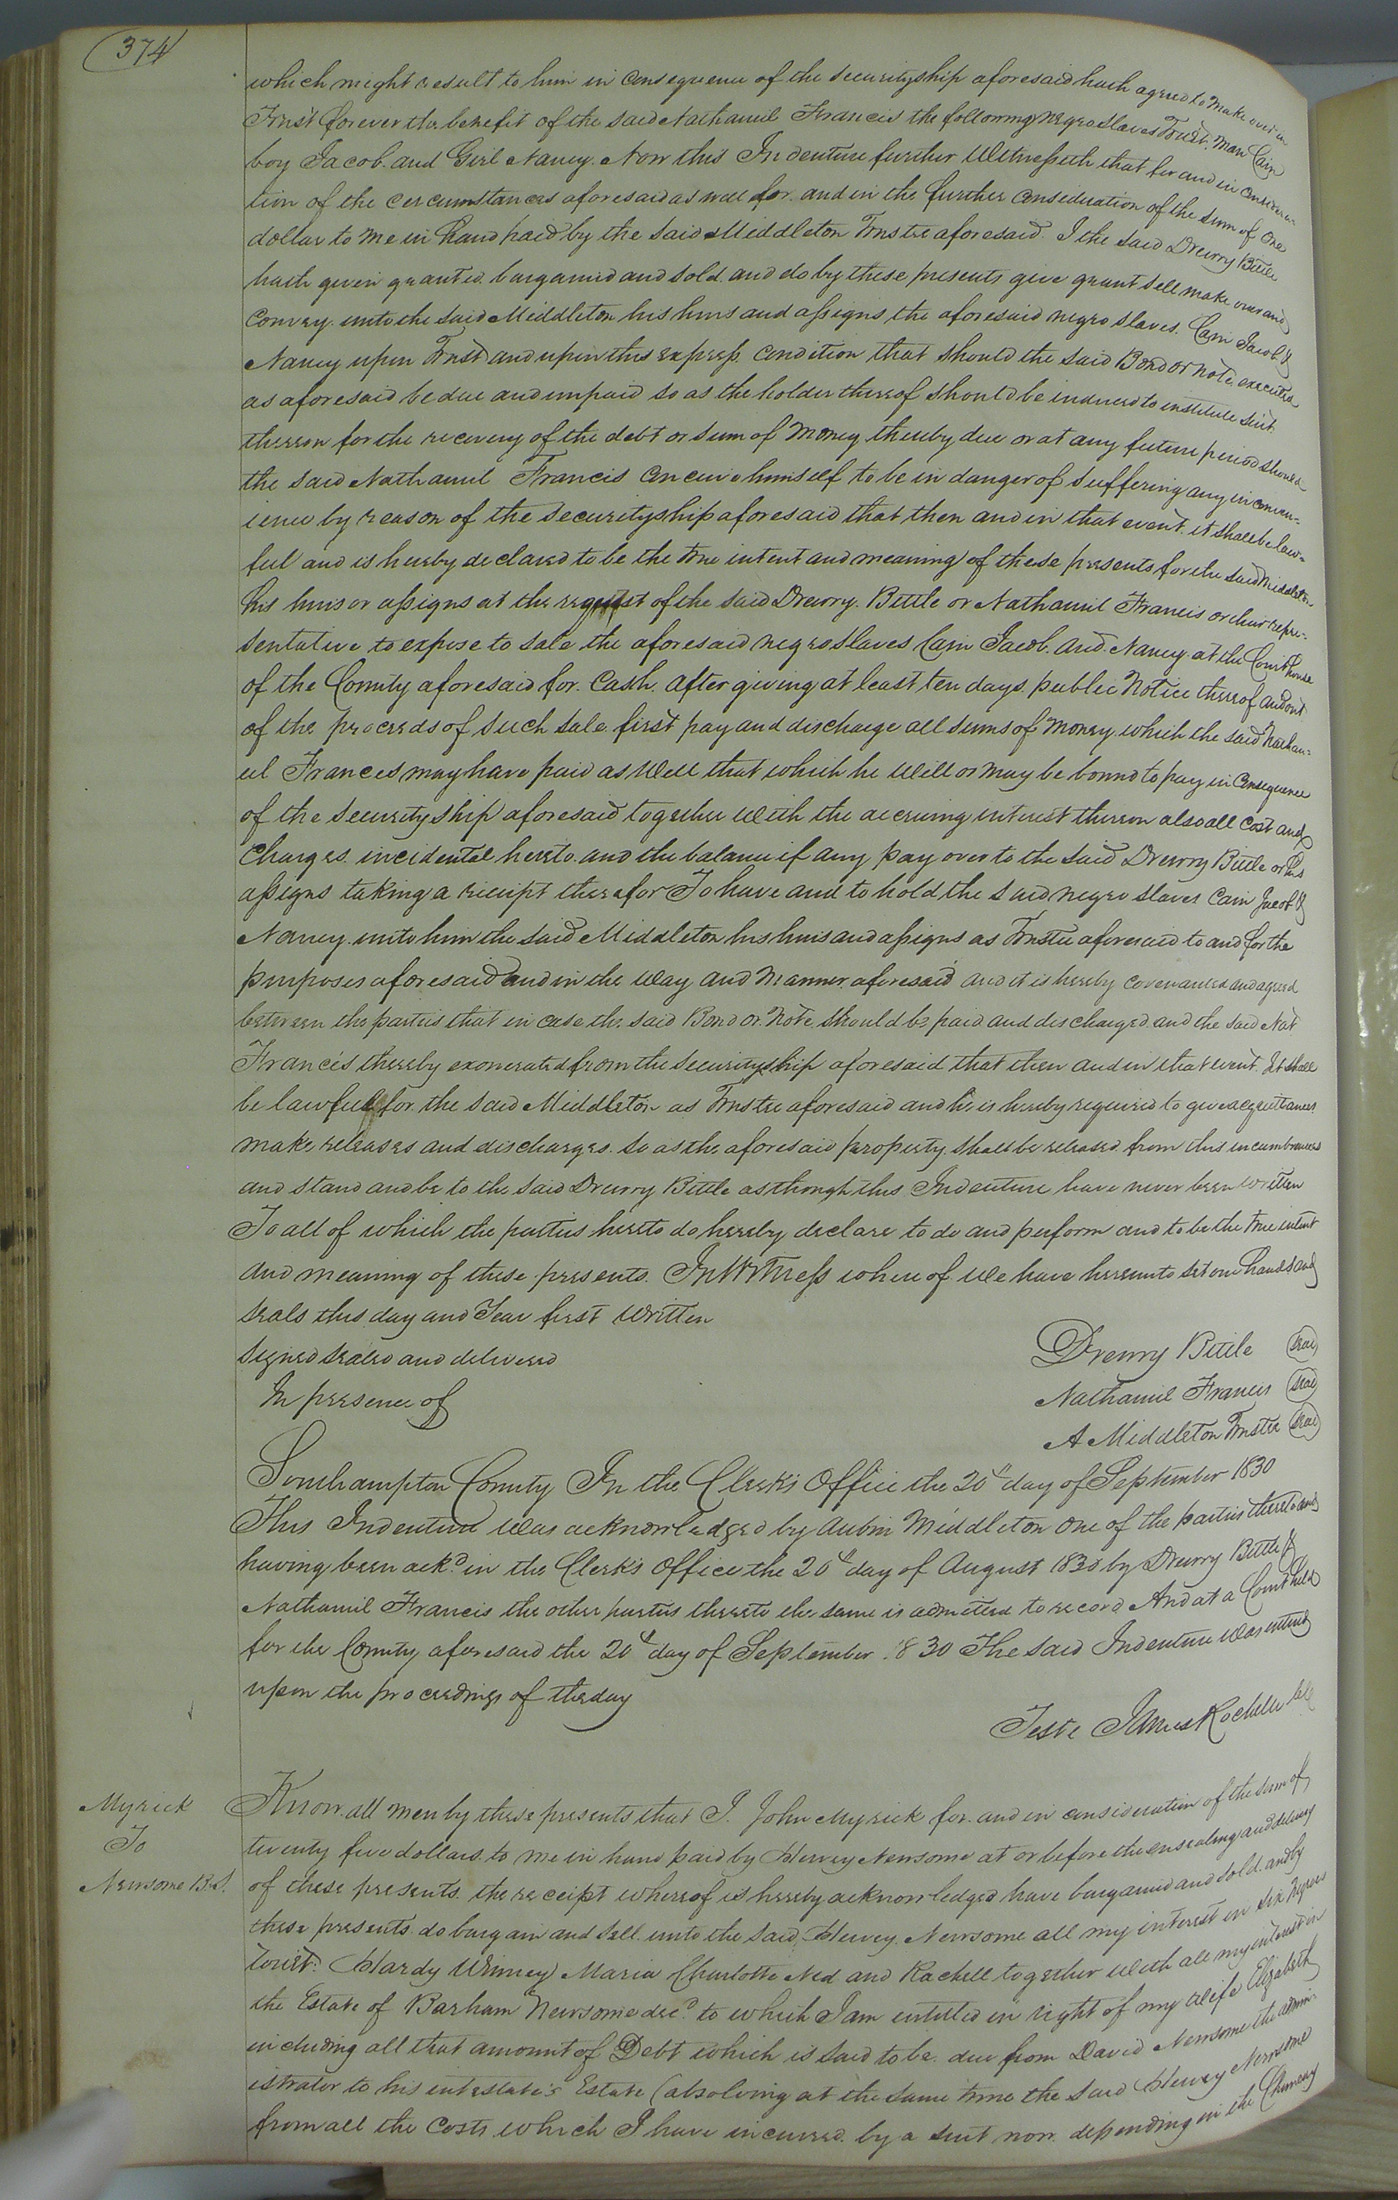 374
which might result to him in consequence of the securityship aforesaid hath agreed to make over in
Trust forever the benefit of the said Nathaniel Francis the following negro slaves Towit. Man Cain
boy Jacob. and Girl Nancy. Now this Indenture further Witnesseth that for and in considera-
tion of the circumstances aforesaid as well for. and in the further consideration of the sum of one
dollar to me in hand paid by the said Middleton Trustee aforesaid. I the said Drewry Bittle
hath given granted. bargained and sold. and do by these presents give grant sell make over and
convey. unto the said Middleton his heirs and assigns, the aforesaid negro slaves. Cain Jacob &
Nancy upon Trust and upon this express. condition that should the said Bond or note executed
as aforesaid be due and unpaid so as the holder thereof should be induced to institute suit.
thereon for the recovery of the debt or sum of money thereby due or at any future period should
the said Nathaniel Francis conceive himself to be in danger of suffering any inconven-
ience by reason of the securityship aforesaid that then and in that event. it shall be law-
ful and is hereby declared to be the true intent and meaning of these presents for the said Middleton
his heirs or assigns at the request of the said Drewry. Bittle or Nathaniel Francis or their repre-
sentative to expose to sale the aforesaid negro slaves Cain Jacob. and. Nancy. at the Courthouse
of the County aforesaid for. Cash. after giving at least ten days public Notice thereof and out
of the proceeds of such sale first pay and discharge all sums of money which the said Nathan-
iel Frances may have paid as well that which he will or may be bound to pay in consequence
of the securityship aforesaid together with the accruing interest thereon also all cost and
charges. incidental hereto. and the balance if any pay over to the said Drewry Bittle or his
assigns taking a receipt therefor To have and to hold the said negro slaves Cain Jacob &
Nancy. unto him the said Middleton his heirs and assigns as Trustee aforesaid to and for the
purposes aforesaid and in the way and manner aforesaid and it is hereby covenanted and agreed
between the parties that in case the said Bond or. Note should be paid and discharged. and the said Nat
Francis thereby exonerated from the securityship aforesaid that then and in that event. It shall
be lawful for. the said Middleton as Trustee aforesaid and he is hereby required to give acquittances
make releases and discharges. so as the aforesaid property shall be released from this incumbrances
and stand and be to the said Drewry Bittle as though this Indenture have never been written
To all of which the parties hereto do hereby declare to do and perform and to be the true intent
and meaning of these presents. In Witness whereof we have hereunto set our hands and
seals this day and Year first written
Signed sealed and delivered
In presence of
Drewry Bittle (seal)
Nathaniel Francis (seal)
A Middleton Trustee (seal)
Southampton County In the Clerk's Office the 20th day of September 1830
This Indenture was acknowledged by Aubin Middleton one of the parties thereto and
having been ackd in the Clerk's Office the 20th day of August 1830 by Drewry Bittle &
Nathaniel Francis the other parties thereto the same is admitted to record And at a Court held
for the County aforesaid the 20th day of September 1830 The said Indenture was entered
upon the proceedings of the day
Teste James Rochelle
Myrick
To
Newsome B.S.
Know. all men by these presents that I. John Myrick for. and in consideration of the sum of
twenty five dollars to me in hand paid by Hervey Newsome at or before the ensealing and delivery
of these presents. the receipt whereof is hereby acknowledged have bargained and sold. and by
these presents. do bargain and sell. unto the said. Hervey. Newsome all my interest in six Negroes
towit: Hardy Winney Maria Charlotte Ned and Rachell together with all my interest in
the Estate of Barham Newsome decd. to which I am entitled in right of my wife Elizabeth
including all that amount of Debt which is said to be. due from David Newsome the admin-
istrator to his intestate's Estate (absolving at the same time the said Hervey Newsome
from all the costs which I have incurred. by a suit now. depending in the Chancery